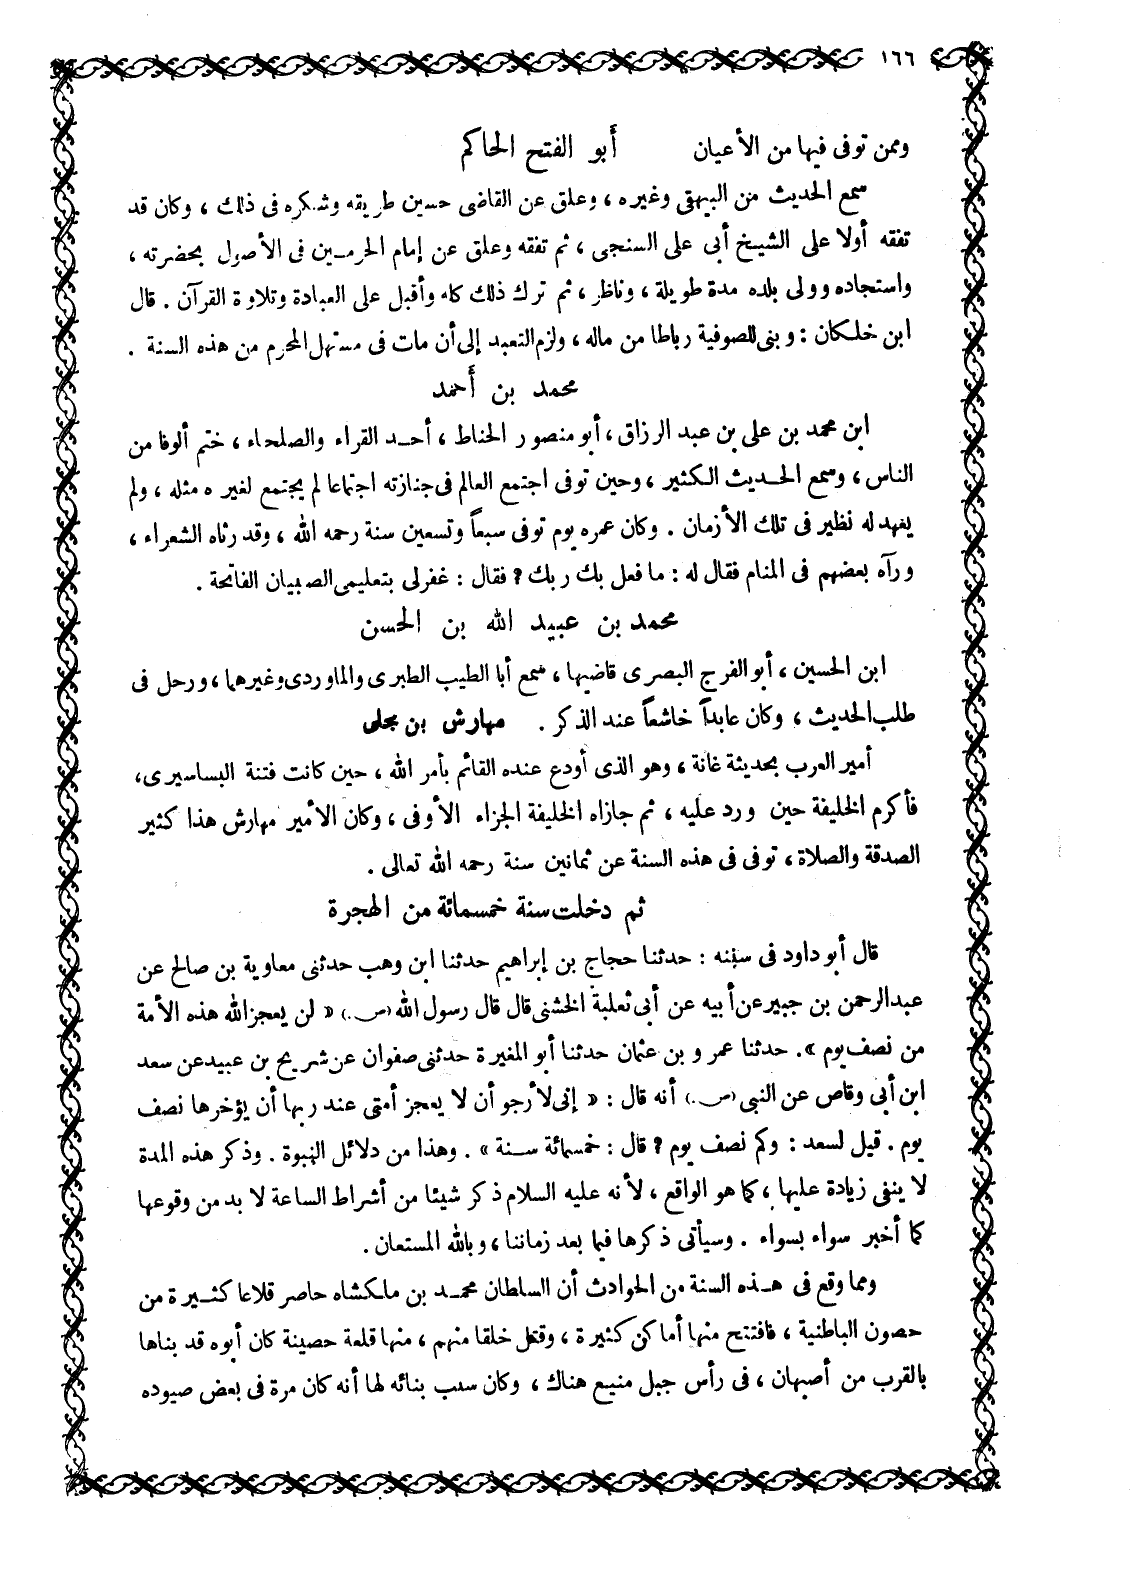 ١٦٦
وممن توفى فيها من الأعيان أبو الفتح الحاكم
سمع الحديث من البيهقى وغيره ، وعلق عن القاضى حسين طريقه وشكره فى ذلك ، وكان قد
تفقه أولا على الشيخ أبى على السنجى ، ثم تفقه وعلق عن إمام الحرمين فى الأصول بحضرته ،
واستجاده وولى بلده مدة طويلة ، وناظر ، ثم ترك ذلك كله وأقبل على العبادة وتلاوة القرآن . قال
ابن خلكان : وبنى للصوفية رباطا من ماله ، ولزم التعبد إلى أن مات فى مستهل المحرم من هذه السنة .
محمد بن أحمد
ابن محمد بن على بن عبد الرزاق ، أبو منصور الحناط ، أحد القراء والصلحاء ، ختم ألوفا من
الناس ، وسمع الحديث الكثير ، وحين توفى اجتمع العالم فى جنازته اجتماعا لم يجتمع لغيره مثله ، ولم
يعهد له نظير فى تلك الأزمان . وكان عمره يوم توفى سبعاً وتسعين سنة رحمه الله ، وقد رثاه الشعراء ،
ورآه بعضهم فى المنام فقال له : ما فعل بك ربك ؟ فقال : غفر لى بتعليمى الصبيان الفاتحة .
محمد بن عبيد الله بن الحسن
ابن الحسين ، أبو الفرج البصرى قاضيها ، سمع أبا الطيب الطبرى والماوردى وغيرهما ، ورحل فى
طلب الحديث ، وكان عابداً خاشعاً عند الذكر . مهارش بن مجلى
أمير العرب بحديثة غانة ، وهو الذى أودع عنده القائم بأمر الله ، حين كانت فتنة البساسيرى ،
فأكرم الخليفة حين ورد عليه ، ثم جازاه الخليفة الجزاء الأوفى ، وكان الأمير مهارش هذا كثير
الصدقة والصلاة ، توفى فى هذه السنة عن ثمانين سنة رحمه الله تعالى .
ثم دخلت سنة خمسمائة من الهجرة
قال أبو داود فى سننه : حدثنا حجاج بن إبراهيم حدثنا ابن وهب حدثنى معاوية بن صالح عن
عبد الرحمن بن جبير عن أبيه عن أبى ثعلبة الخشنى قال قال رسول الله (ص.) « لن يعجز الله هذه الأمة
من نصف يوم » . حدثنا عمرو بن عثمان حدثنا أبو المغيرة حدثنى صفوان عن شريح بن عبيد عن سعد
ابن أبى وقاص عن النبى (ص.) أنه قال : « إنى لأرجو أن لا يعجز أمتى عند ربها أن يؤخرها نصف
يوم . قيل لسعد : وكم نصف يوم ؟ قال : خمسمائة سنة » . وهذا من دلائل النبوة . وذكر هذه المدة
لا ينفى زيادة عليها ، كما هو الواقع ، لأنه عليه السلام ذكر شيئا من أشراط الساعة لا بد من وقوعها
كما أخبر سواء بسواء . وسيأتى ذكرها فيما بعد زماننا ، وبالله المستعان .
ومما وقع فى هذه السنة من الحوادث أن السلطان محمد بن ملكشاه حاصر قلاعا كثيرة من
حصون الباطنية ، فافتتح منها أماكن كثيرة ، وقتل خلقا منهم ، منها قلعة حصينة كان أبوه قد بناها
بالقرب من أصبهان ، فى رأس جبل منيع هناك ، وكان سبب بنائه لها أنه كان مرة فى بعض صيوده